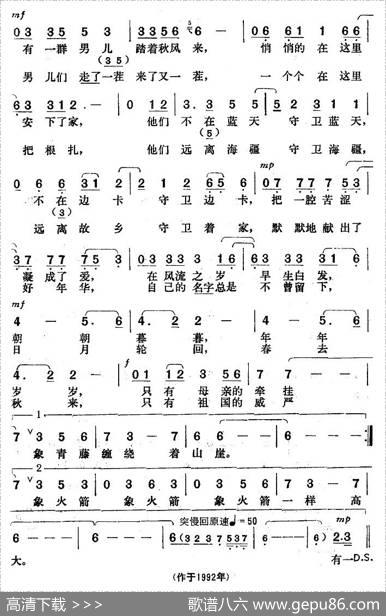 mf
03 35 5 3 | 3356 6 - | 02 66 01 61 |
有一群男儿 踏着秋风来， 悄悄的在这里
(3 5)
男儿们走了一茬 来了又一茬， 一个个在这里
63 312. - | 0 12 3. 5 5 | 5 2 31 1 |
安下了家， 他们不在蓝天 守卫蓝天
(5)
把根扎， 他们远离海疆 守卫海疆，
mp
0 6 6 31 2 | 2 2 2 65 6 | 07 77 77 53 |
不在边卡 守卫边卡，把一腔苦涩
(3)
远离故乡 守卫着家，默默地献出了
37 77 75 3 | 03 33 33 13 | 6 6 6 5 6 - |
凝成了爱， 在风流之岁 早生白发，
好年华， 自己的名字总是 不曾留下，
mf
4 - 5. 6 | 4. 2 2 - | 4 - 5. 6 |
朝朝暮暮，年年
日月轮回，春去
f
4. 2 2 - | 01 12 3 3 | 2 3 56 7 |
岁岁， 只有母亲的牵挂
秋来， 只有祖国的威严
1
7 ∨ 3 5 6 | 7 3 - 7 | 6 - - - | 6 - - - :‖
象青藤缠绕着山崖。
2
7 ∨ 3 5 6 | 7 ∨ 3 5 6 | 7 ∨ 3 5 6 | 7 3 - 7 |
象火箭 象火箭 象火箭一样高
突慢回原速♩=50 mp
6 - - - | 6 - - - | 6 (323 7 537 | 6 - -) 2.3 ‖
大。 有一D.S.
(作于1992年)
高清下载 >>> 歌谱八六 www.gepu86.com